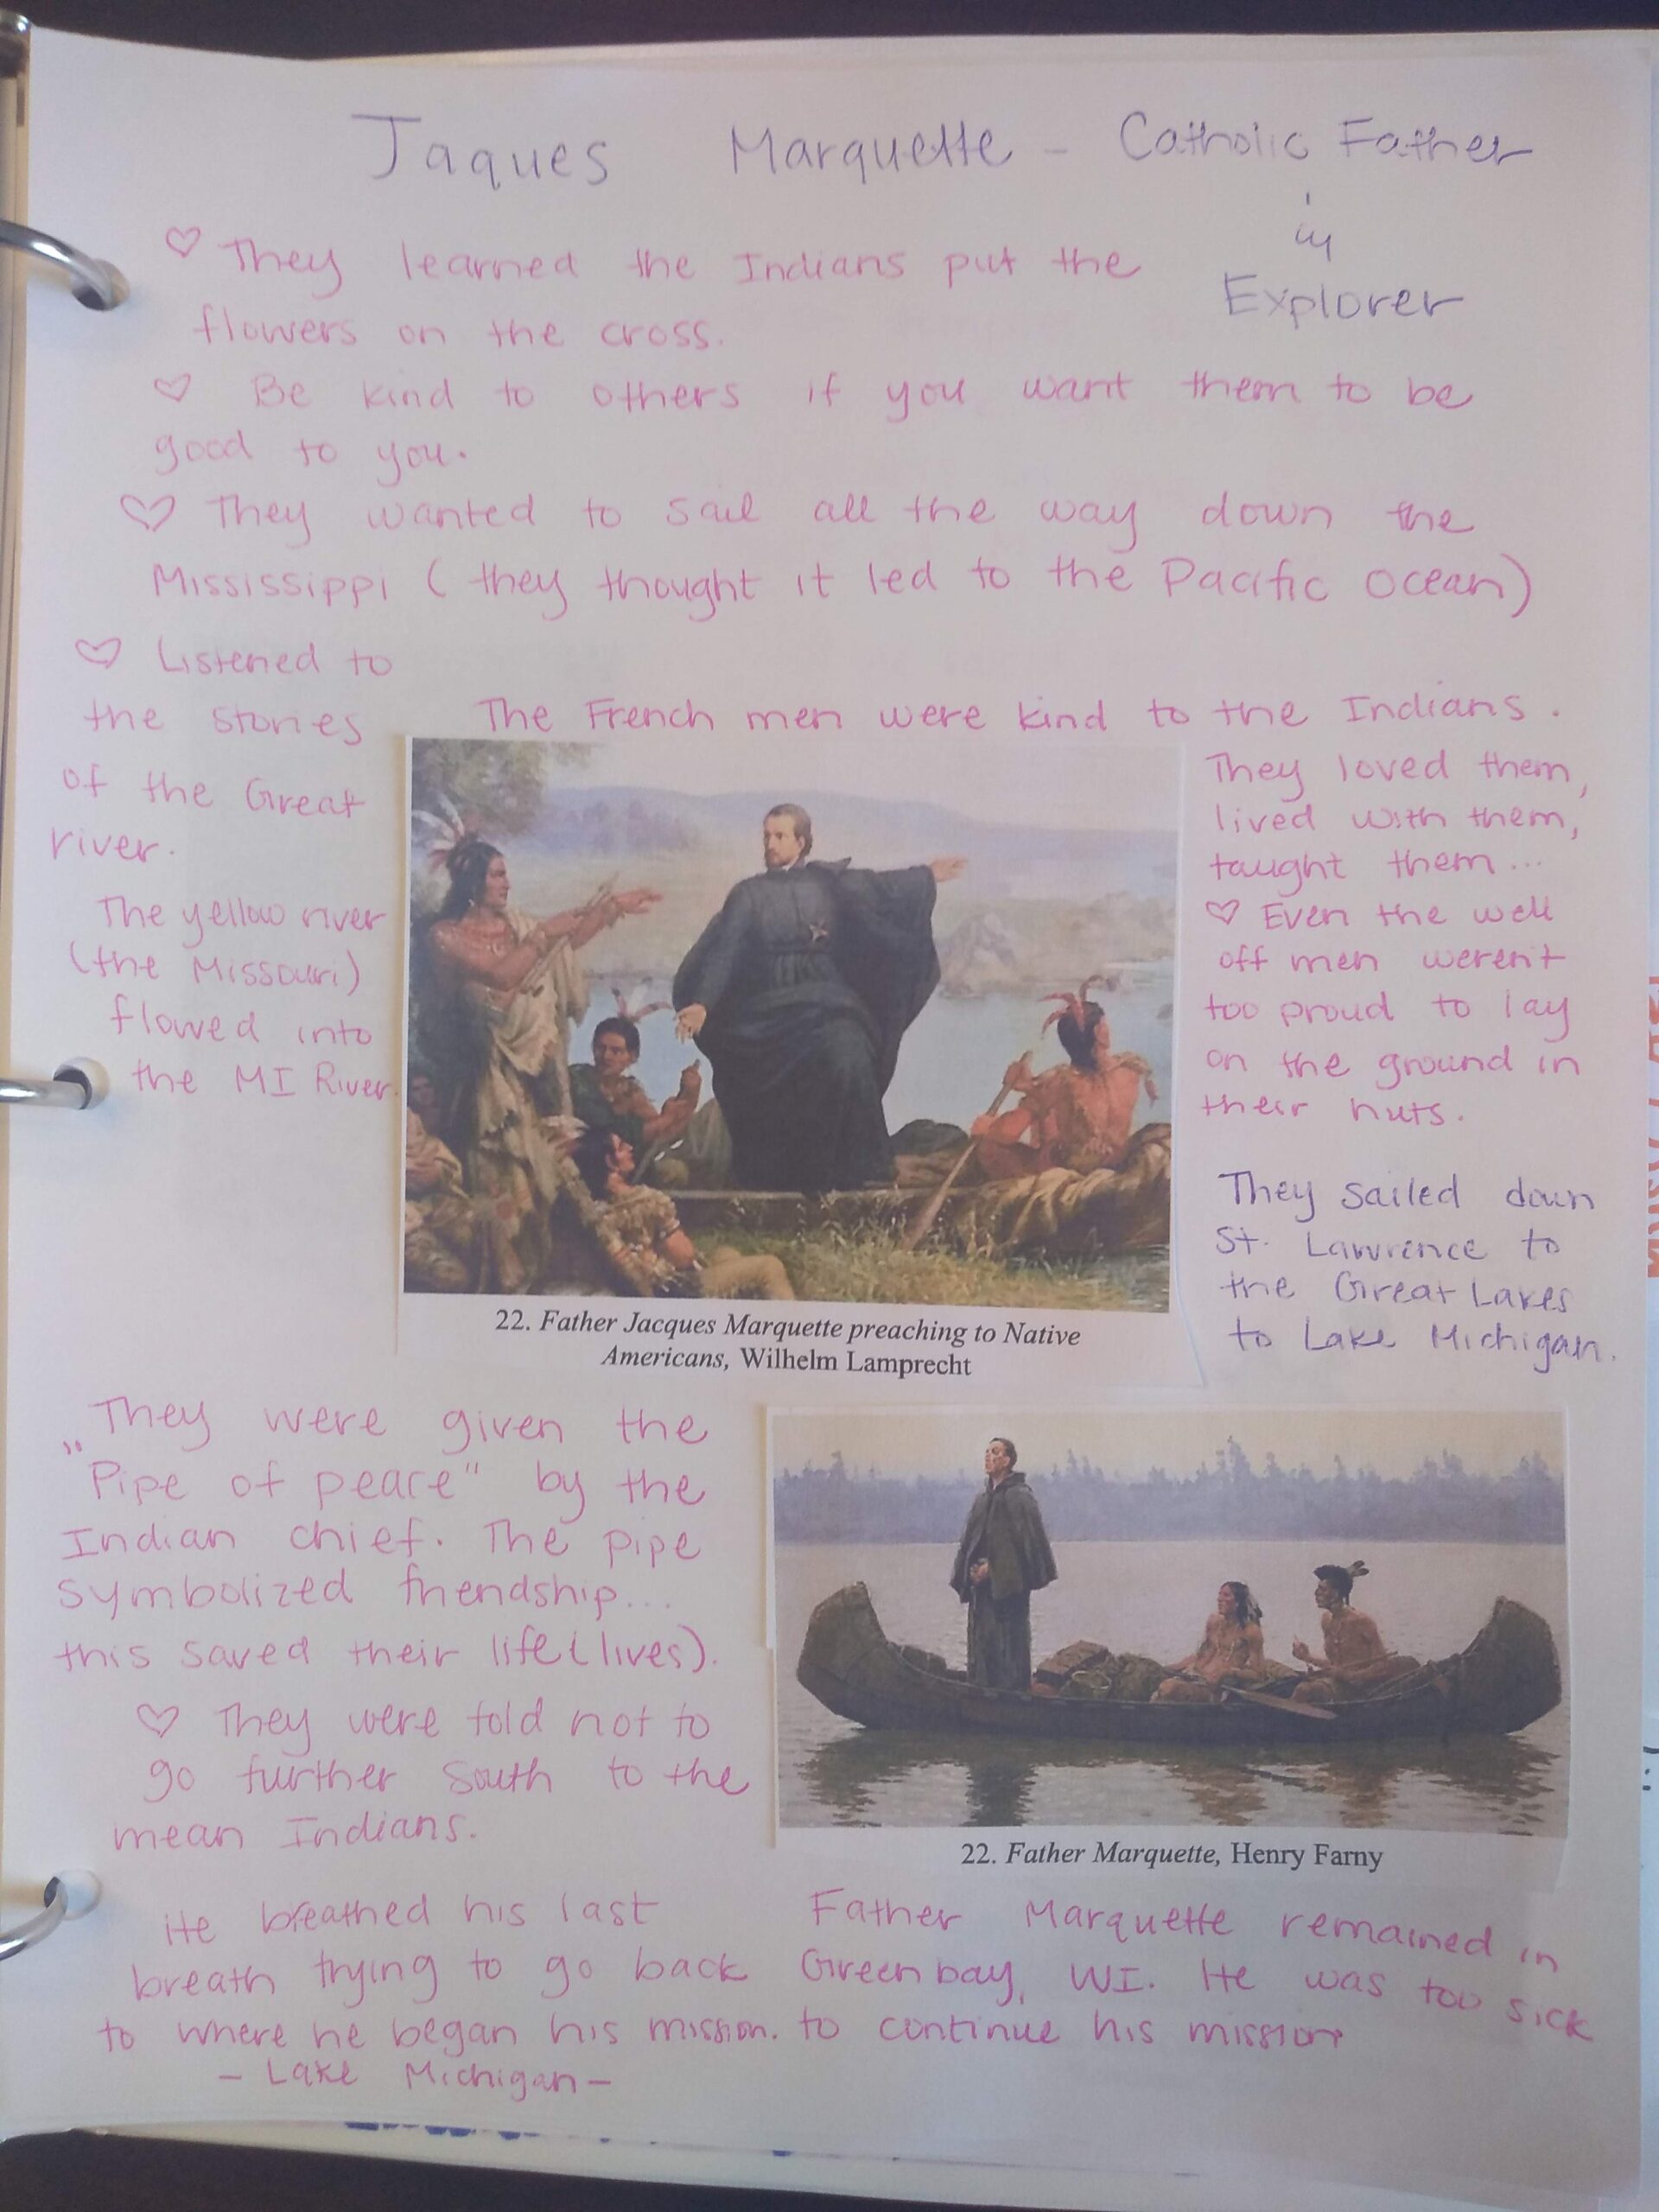 Jaques Marquette - Catholic Father
Explorer
♡ They learned the Indians put the
flowers on the cross.
♡ Be kind to others if you want them to be
good to you.
♡ They wanted to sail all the way down the
Mississippi (they thought it led to the Pacific Ocean)
♡ Listened to
the stories
of the Great
river.
The yellow river
(the Missouri)
flowed into
the MI River.
The French men were kind to the Indians.
They loved them,
lived with them,
taught them...
♡ Even the well
off men weren't
too proud to lay
on the ground in
their huts.
They sailed down
St. Lawrence to
the Great Lakes
to Lake Michigan.
22. Father Jacques Marquette preaching to Native
Americans, Wilhelm Lamprecht
They were given the
"Pipe of peace" by the
Indian chief. The pipe
symbolized friendship...
this saved their life (lives).
♡ They were told not to
go further South to the
mean Indians.
22. Father Marquette, Henry Farny
He breathed his last
breath trying to go back
to where he began his mission.
- Lake Michigan -
Father Marquette remained in
Green bay, WI. He was too sick
to continue his mission